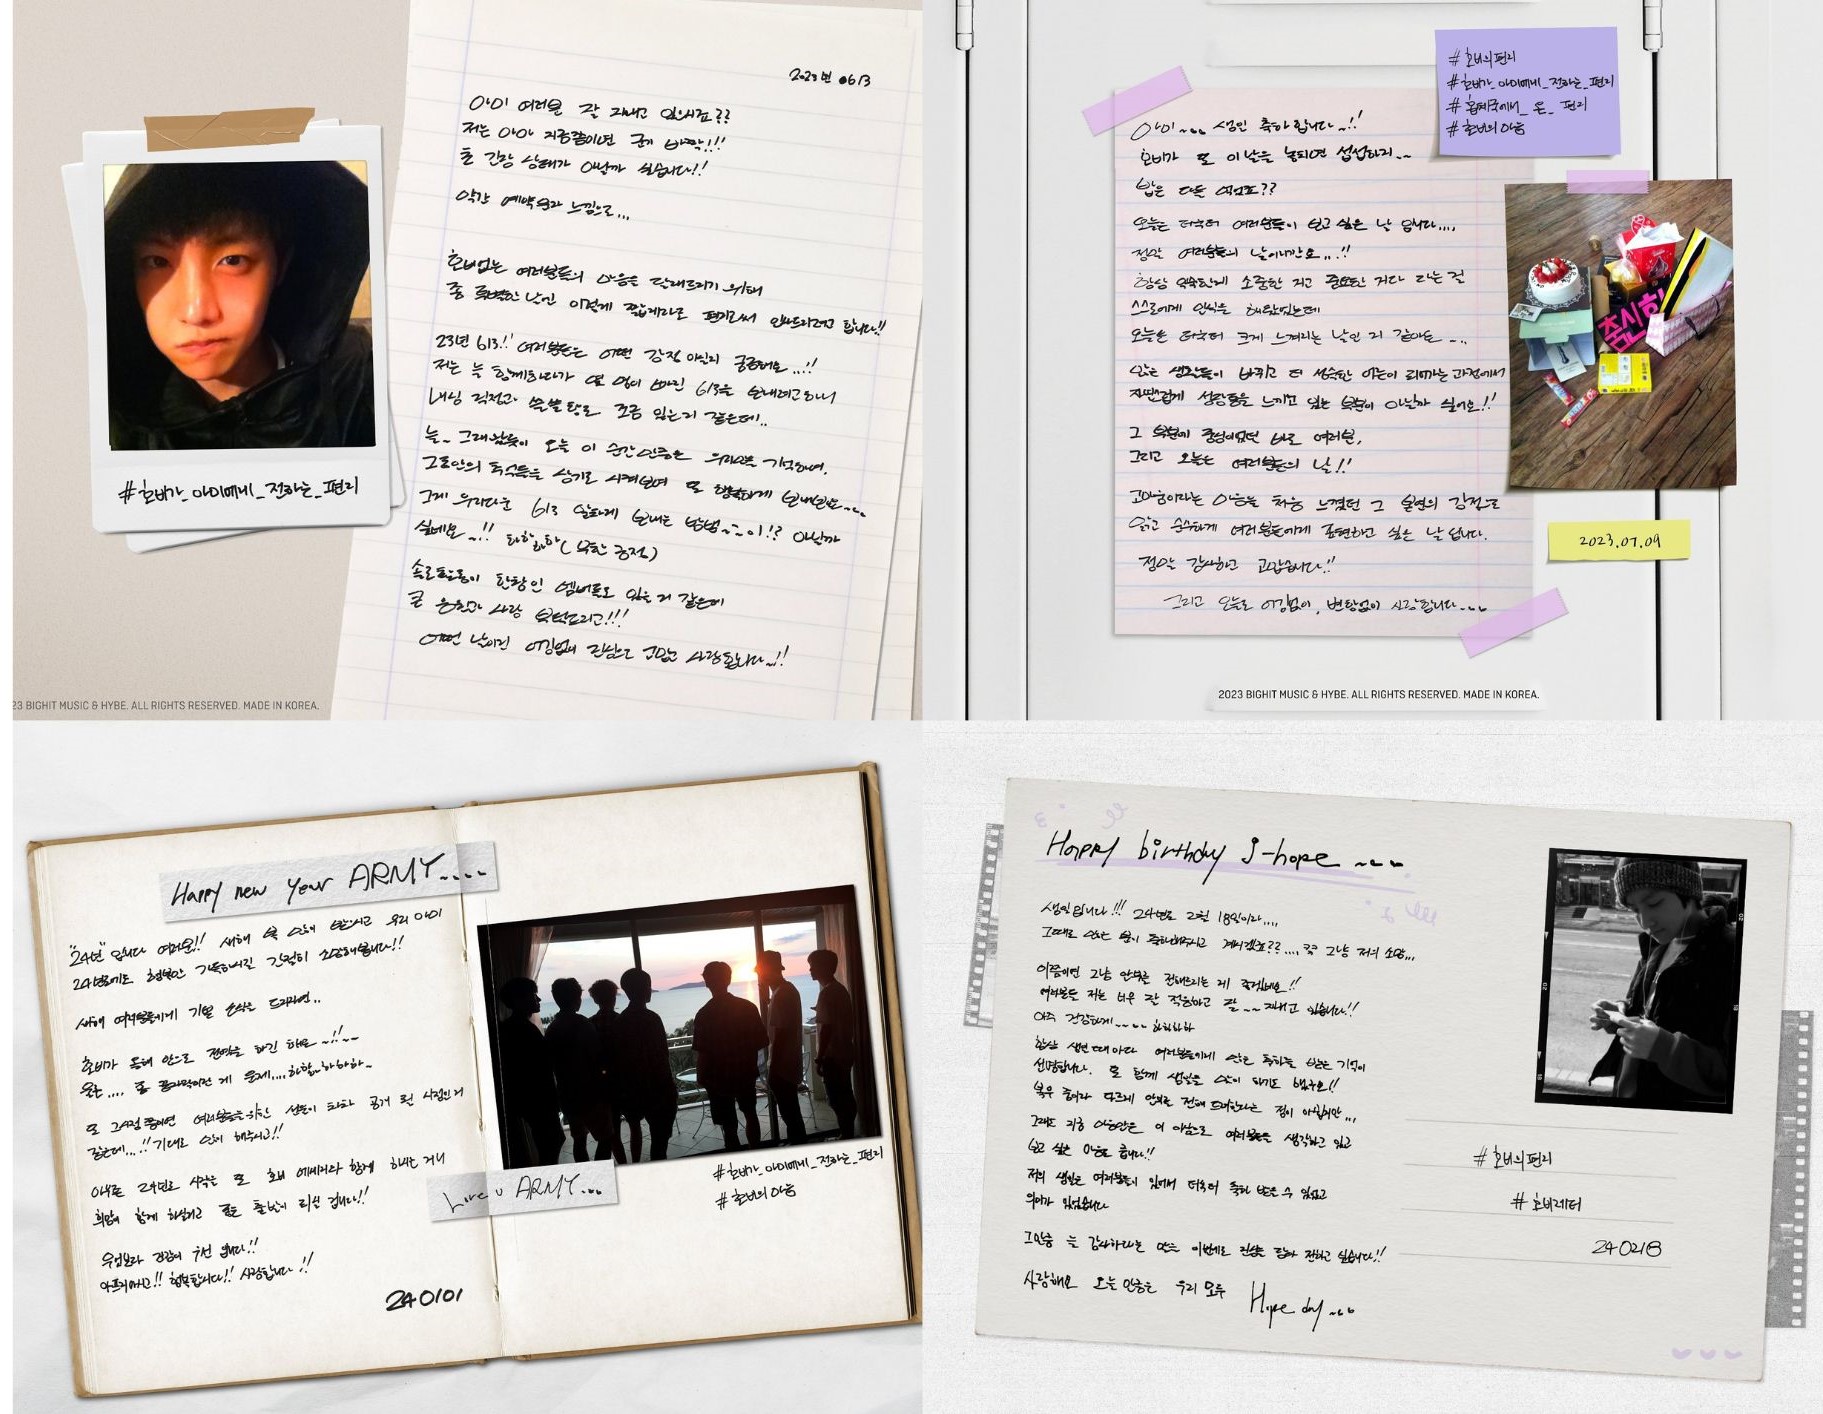 2023년 0613
아미 여러분 잘 지내고 있으시죠??
저는 아마 지금쯤이면 군기 바짝!!!
초 긴장 상태가 아닐까 싶습니다!!
약간 예약문자 느낌으로...
호비없는 여러분들의 마음을 달래드리기 위해
좀 특별한 날인 이렇게 짧게라도 편지로써 인사드리려고 합니다!!
23년 613!! 여러분들은 어떤 감정 이실지 궁금해요...!!
저는 늘 함께하다가 몇 명이 빠진 613을 보내려고하니
내심 걱정과 씁쓸함도 조금 있는거 같은데..
늘~ 그래왔듯이 오늘 이 순간만큼은 우리모두 기억하며,
그동안의 추억들을 상기도 시켜보며 또 행복하게 보내보아요~~
그게 우리다운 613 알차게 보내는 방법~~이!? 아닐까
싶네요~!! 하하하하(무한 긍정)
솔로활동이 한창인 멤버들도 있을 거 같은데
큰 응원과 사랑 부탁드리고!!!
어떤 날이던 어김없이 진심으로 고맙고 사랑합니다~!!
#호비가_아미에게_전하는_편지
23 BIGHIT MUSIC & HYBE. ALL RIGHTS RESERVED. MADE IN KOREA.
#호비의편지
#호비가_아미에게_전하는_편지
#홉제국에서_온_편지
#호비의마음
아미~~~ 생일 축하합니다~!!
호비가 또 이날을 놓치면 섭섭하지~~
밥은 다들 먹었죠??
오늘은 더욱더 여러분들이 보고 싶은 날 입니다....
정말 여러분들의 날이니깐요...!!
항상 익숙한게 소중한 거고 중요한 거다 라는 걸
스스로에게 인식을 해왔었는데
오늘은 더욱더 크게 느껴지는 날인 거 같아요 ~..
많은 생각들이 바뀌고 더 성숙한 어른이 되어가는 과정에서
지땐럽게 성장통을 느끼고 있는 부분이 아닐까 싶어요!!
그 부분에 중심이었던 바로 여러분,
그리고 오늘은 여러분들의 날!!
고마움이라는 마음을 처음 느꼈던 그 날의 감정으로
맑고 순수하게 여러분들에게 표현하고 싶은 날 입니다.
정말 감사하고 고맙습니다!!
그리고 오늘도 어김없이, 변함없이 사랑합니다~~~
2023.07.09
2023 BIGHIT MUSIC & HYBE. ALL RIGHTS RESERVED. MADE IN KOREA.
Happy new year ARMY....
"24년" 입니다 여러분!! 새해 복 많이 받으시고 우리 아미
24년에도 행복만 가득하시길 간절히 소망해봅니다!!
새해 여러분들에게 기쁜 소식을 드리자면..
호비가 올해 안으로 전역을 하긴 해요~!!~~
물론.... 좀 끝자락이란 게 문제....하핳~하하하~
또 그시점 쯤이면 여러분들을 위한 선물이 하나 공개 될 시점인거
같은데...!! 기대도 많이 해주시고!!
아무튼 24년도 시작을 또 호비 에너지와 함께 하시는 거니
희망이 함께 하실거고 좋은 출발이 되실 겁니다!!
무엇보다 건강이 우선 입니다!!
아프지마시고!! 행복합시다!! 사랑합니다!!
240101
Love u ARMY...
#호비가_아미에게_전하는_편지
#호비의마음
Happy birthday j-hope ~~~
생일입니다!!! 24년도 2월 18일이라....
그때도 많은 분이 축하해주시고 계시겠죠??.... 큭큭 그냥 저의 소망...
이쯤이면 그냥 안부를 전해드리는 게 좋겠네요!!
여러분들 저는 너무 잘 적응하고 잘~~ 지내고 있습니다!!
아주 건강하게~~~~ 하하하하
항상 생일때마다 여러분들에게 많은 축하를 받은 기억이
선명합니다. 또 함께 생일을 많이 하기도 했구요!!
복무 중이라 다르게 안부를 전해 드려야하는 점이 아쉽지만...
그래도 지금 마음만은 이 이상으로 여러분들을 생각하고 있고
보고 싶은 마음도 큽니다!!
저의 생일은 여러분들이 있어서 더욱더 축하 받을 수 있었고
의미가 있었습니다
그만큼 늘 감사하다는 말을 이번에도 진심을 담아 전하고 싶습니다!!
사랑해요 오늘 만큼은 우리 모두 Hope day~~~
#호비의편지
#호비레터
240218